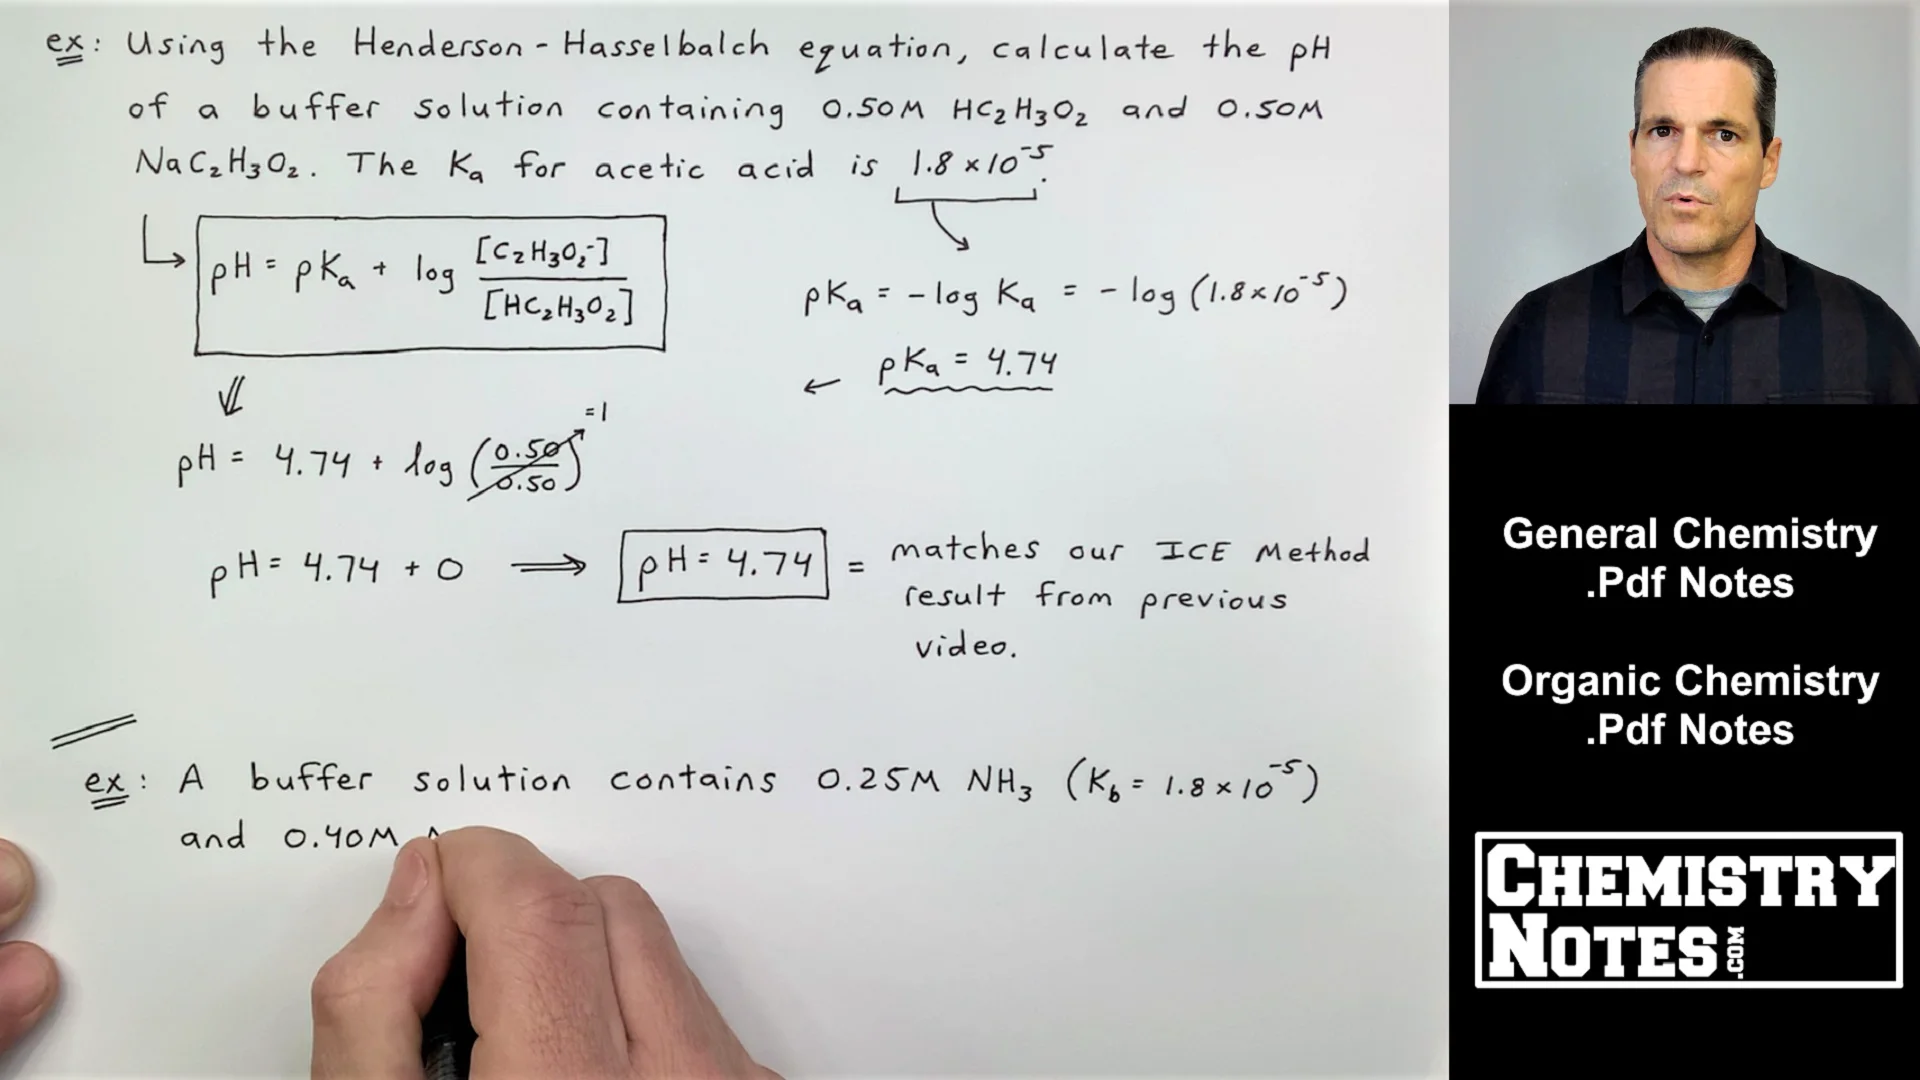 ex: Using the Henderson-Hasselbalch equation, calculate the pH
of a buffer solution containing 0.50M HC₂H₃O₂ and 0.50M
NaC₂H₃O₂. The Kₐ for acetic acid is 1.8 × 10⁻⁵.
pH = pKₐ + log [C₂H₃O₂⁻] / [HC₂H₃O₂]
pKₐ = - log Kₐ = - log (1.8 × 10⁻⁵)
pKₐ = 4.74
pH = 4.74 + log (0.50 / 0.50) = 1
pH = 4.74 + 0 ⟹ pH = 4.74 = matches our ICE Method
result from previous
video.
ex: A buffer solution contains 0.25M NH₃ (K_b = 1.8 × 10⁻⁵)
and 0.40M
General Chemistry
.Pdf Notes
Organic Chemistry
.Pdf Notes
CHEMISTRY
NOTES.COM